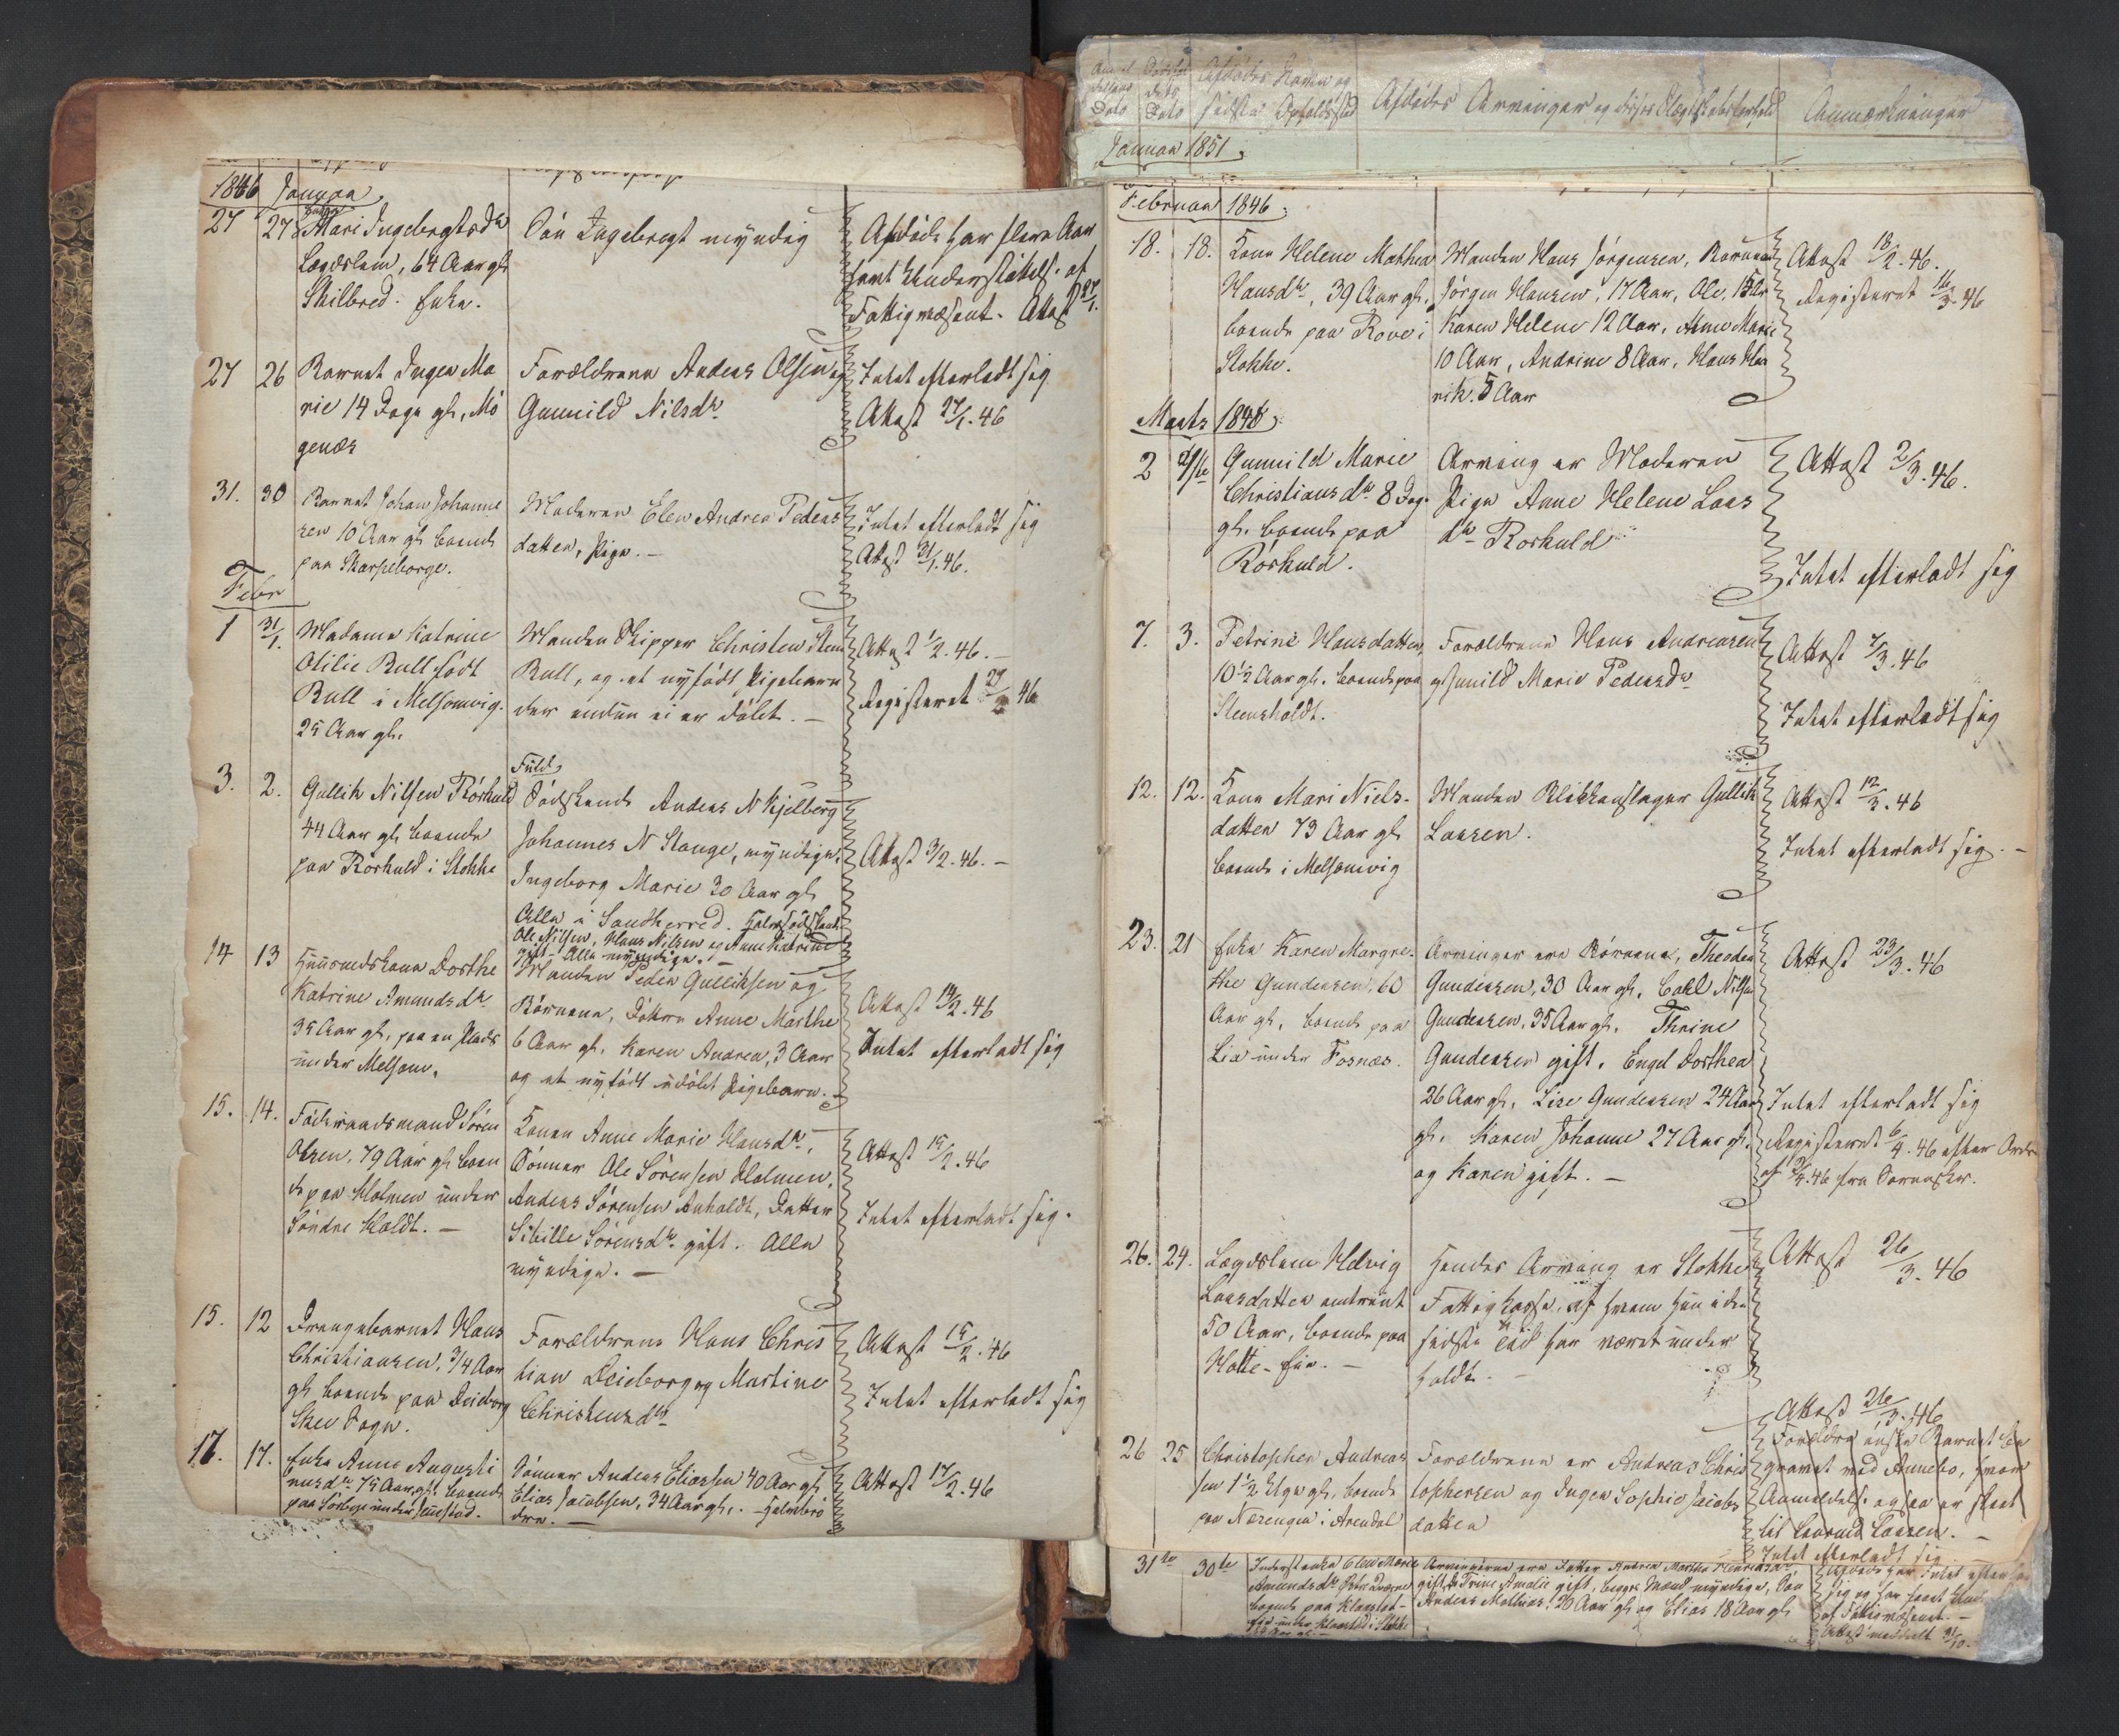 1846 Januar
27
27
Enke
Mari Ingebrigtsdr
Lægdslem, 64 Aar gl.
Skilbred. Enke.
Søn Ingebregt myndig
Afdøde har flere Aar
faaet Understøttelse af
Fattigvæsent. Attest 27/1.
27
26
Barnet Inger Ma
rie 14 Dage gl, Mø
genæs
Forældrene Anders Olsen og
Gunnild Nilsdr
Intet efterladt sig
Attest 27/1. 46
31.
30
Barnet Johan Johanne
sen 10 Aar gl boende
paa Skarpeborge.
Moderen Elen Andrea Peders
datter, Pige. —
Intet efterladt sig
Attest 31/1. 46.
Febr
1
31/1.
Madame Katrine
Otilie Bull født
Bull i Melsomvig.
25 Aar gl.
Manden Skipper Christen
Bull, og et nyfødt Pigebarn
der endnu ei er døbt. —
Attest 1/2. 46. —
Registeret 46
3.
2.
Gullik Nilsen Rørkuld
44 Aar gl boende
paa Rørkuld i Stokke
Fuld
Sødskende Anders N Kjelberg
Johannes N Stange, myndige.
Ingeborg Marie 30 Aar gl
Alle i Sandherred. Halvsødskende
Ole Nilsen, Hans Nilsen og Anne Katrine
gift - Alle myndige.
Attest 3/2. 46. —
14
13
Huusmandskone Dorthe
Katrine Amundsdr
35 Aar gl, paa en Plads
under Melsom.
Manden Peder Gulliksen og
Børnene, Døttre Anne Marthe
6 Aar gl. Karen Andrea, 3 Aar
og et nyfødt udøbt Pigebarn. —
Attest 14/2. 46
Intet efterladt sig
15.
14.
Føderaadsmand Søren
Olsen, 79 Aar gl boen
de paa Holmen under
Søndre Holdt. —
Konen Anne Marie Hansdr,
Sønner Ole Sørensen Holmen,
Anders Sørensen Anholdt, Datter
Sibille Sørensdr gift. Alle
myndige. —
Attest 15/2. 46
Intet efterladt sig.
15.
12
Drengebarnet Hans
Christiansen, 3/4 Aar
gl boende paa Deieborg
Skee Sogn.
Forældrene Hans Chris
tian Deieborg og Martine
Christensdr
Attest 15/2. 46
Intet efterladt sig
17.
17.
Enke Anne Augusti
nusdr 75 Aar gl. boende
paa Sørbye under
Sønner Anders Eliassen 40 Aar gl
Elias Jacobsen, 34 Aar gl. - Halvbrø
dre. —
Attest 17/2. 46
Afdødes Navn og
sidste Opholdssted
Afdødes Arvinger og disses Slægtskabsforhold
Anmærkninger
Januar 1851.
Februar 1846.
18.
18.
Kone Helene Mathea
Hansdr, 39 Aar gl.
boende paa Rove i
Stokke.
Manden Hans Jørgensen, Børnene
Jørgen Hansen, 17 Aar, Ole, 15 Aar
Karen Helene 12 Aar, Anne Marie
10 Aar, Andrine 8 Aar, Hans Hen
rik. 5 Aar
Attest 18/2. 46.
Registeret 16/3. 46
Marts 1846
2
Gunnild Marie
Christiansdr 8 Dag.
gl. boende paa
Rørkuld.
Arving er Moderen
Pige Anne Helene Lars
dr Rorkuld
Attest 2/3. 46.
Intet efterladt sig
7.
3.
Petrine Hansdatter
10 1/2 Aar gl. boende paa
Steensholdt.
Forældrene Hans Andreasen
og Gunild Marie Pedersdr
Attest 7/3. 46
Intet efterladt sig
12.
12.
Kone Mari Niels-
datter 73 Aar gl
boende i Melsomvig
Manden Blikkenslager Gullik
Larsen.
Attest 12/3. 46
Intet efterladt sig. —
23.
21
Enke Karen Margre-
the Gundersen, 60
Aar gl, boende paa
Lia under Fosnæs.
Arvinger ere Børnene, Theodor
Gundersen, 30 Aar gl, Carl Nilsen
Gundersen, 35 Aar gl. Thrine
Gundersen gift. Engel Dorthea
26 Aar gl, Lise Gundersen 24 Aar
gl. Karen Johanne 27 Aar gl.
og Karen gift. —
Attest 23/3. 46
Intet efterladt sig
Registeret 6/4. 46 efter Ordre
af 46 fra Sorenskr.
26.
24.
Lægdslem Helvig
Larsdatter omtrent
50 Aar, boende paa
Hotte-Eie. —
Hendes Arving er Stokke
Fattigkasse, af hvem hun i den
sidste Tid har været under
holdt. —
Attest 26/3. 46
26
25
Christopher Andreas
sen 1 1/2 Uge gl, boende
paa Nærengen i Arendal
Forældrene er Andreas Chris
tophersen og Inger Sophie Jacobs
datter
Attest 26/3. 46
Forældre ønske Barnet be
gravet ved Annebo, hvor
Anmeldelse ogsaa er skeet
til Larsen. —
Intet efterladt sig
31te
30te
Inderst enke Elen Marie
Amundsdr
boende paa Klaastad-
eie under Klaastad i Stokke
Arvingerne ere Datter Andrea Marthe Henriksdr
gift, Trine Amalie gift, begges Mænd myndige, Søn
Anders Mathias, 20 Aar gl og Elias 18 Aar gl
Afdøde har Intet efterladt
sig og har faaet Und
af Fattigvæsenet. —
Attest meddeelt